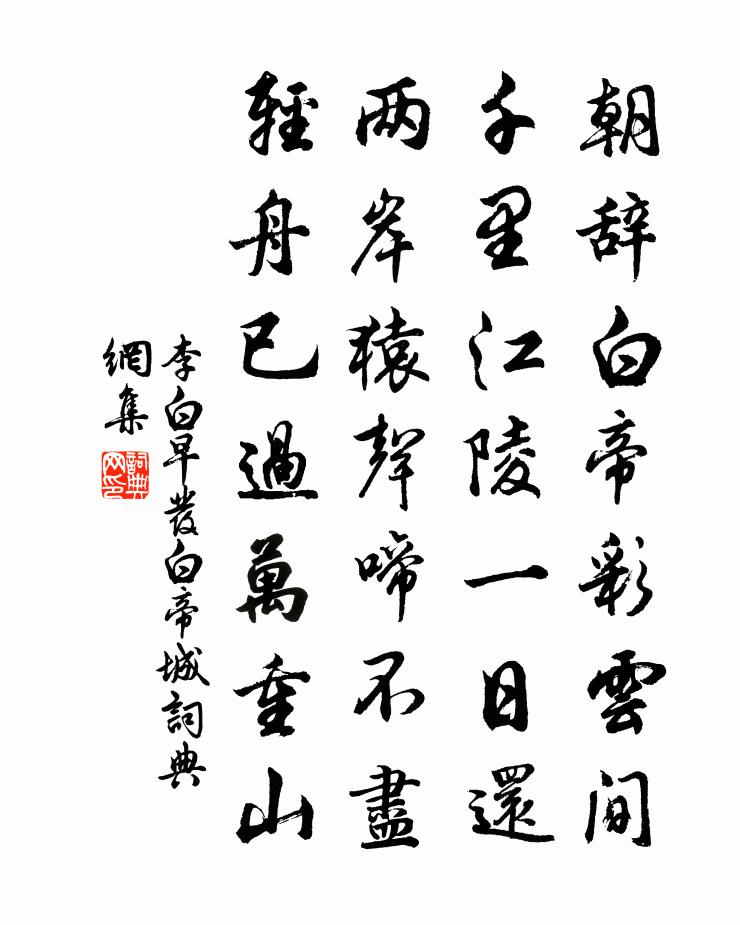 朝辞白帝彩雲間
千里江陵一日還
两岸猿聲啼不盡
輕舟已過萬重山
李白早發白帝城詞典
網集
詞典
网印